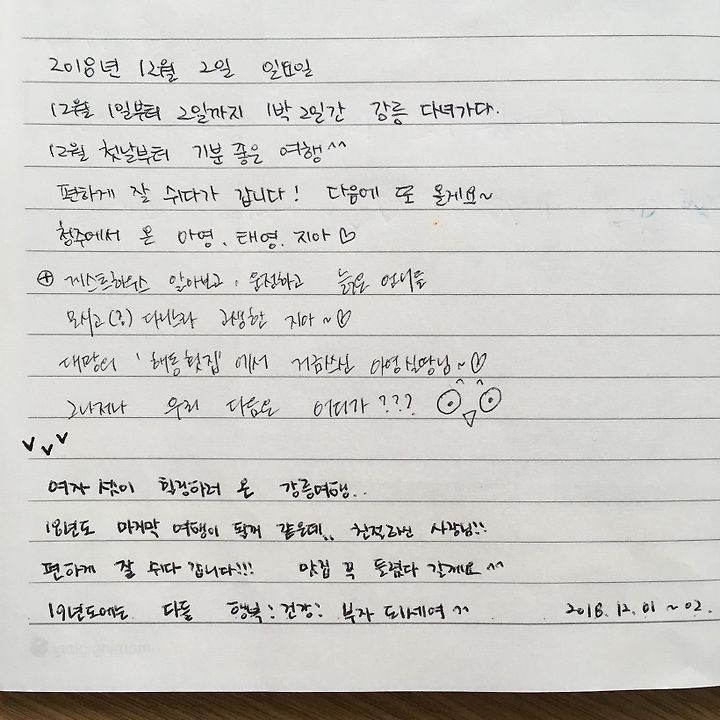 2018년 12월 2일 일요일
12월 1일부터 2일까지 1박 2일간 강릉 다녀가다.
12월 첫날부터 기분 좋은 여행^^
편하게 잘 쉬다가 갑니다! 다음에 또 올게요~
청주에서 온 아영. 태영. 지아♡
⊕ 게스트하우스 알아보고, 운전하고 늙은 언니들
모시고(ㅎ) 다니느라 고생한 지아~♡
대망의 '해동횟집'에서 거금쓰신 아영실땅님~♡
그나저나 우리 다음은 어디가???
여자 셋이 힐링하러 온 강릉여행..
18년도 마지막 여행이 될꺼 같은데.. 친절하신 사장님!!
편하게 잘 쉬다 갑니다!!! 맛집 꼭 들렸다 갈게요^^
19년도에는 다들 행복: 건강: 부자 되세여^^ 2018. 12. 01 ~ 02.
morning glory